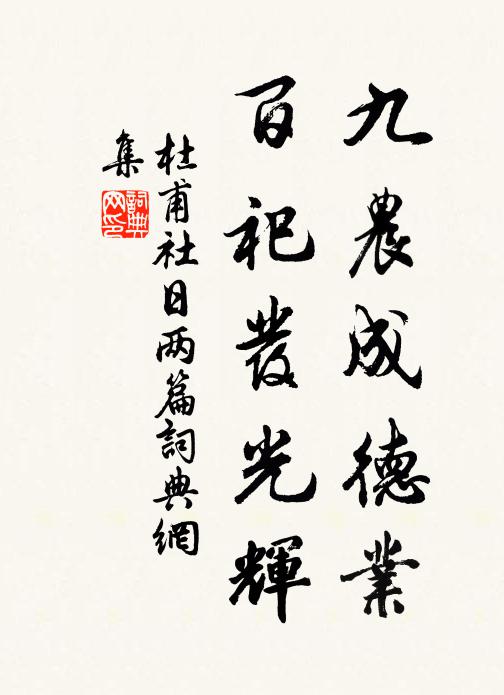 九農成德業
百祀發光輝
杜甫社日两篇詞典網
集
詞典网印